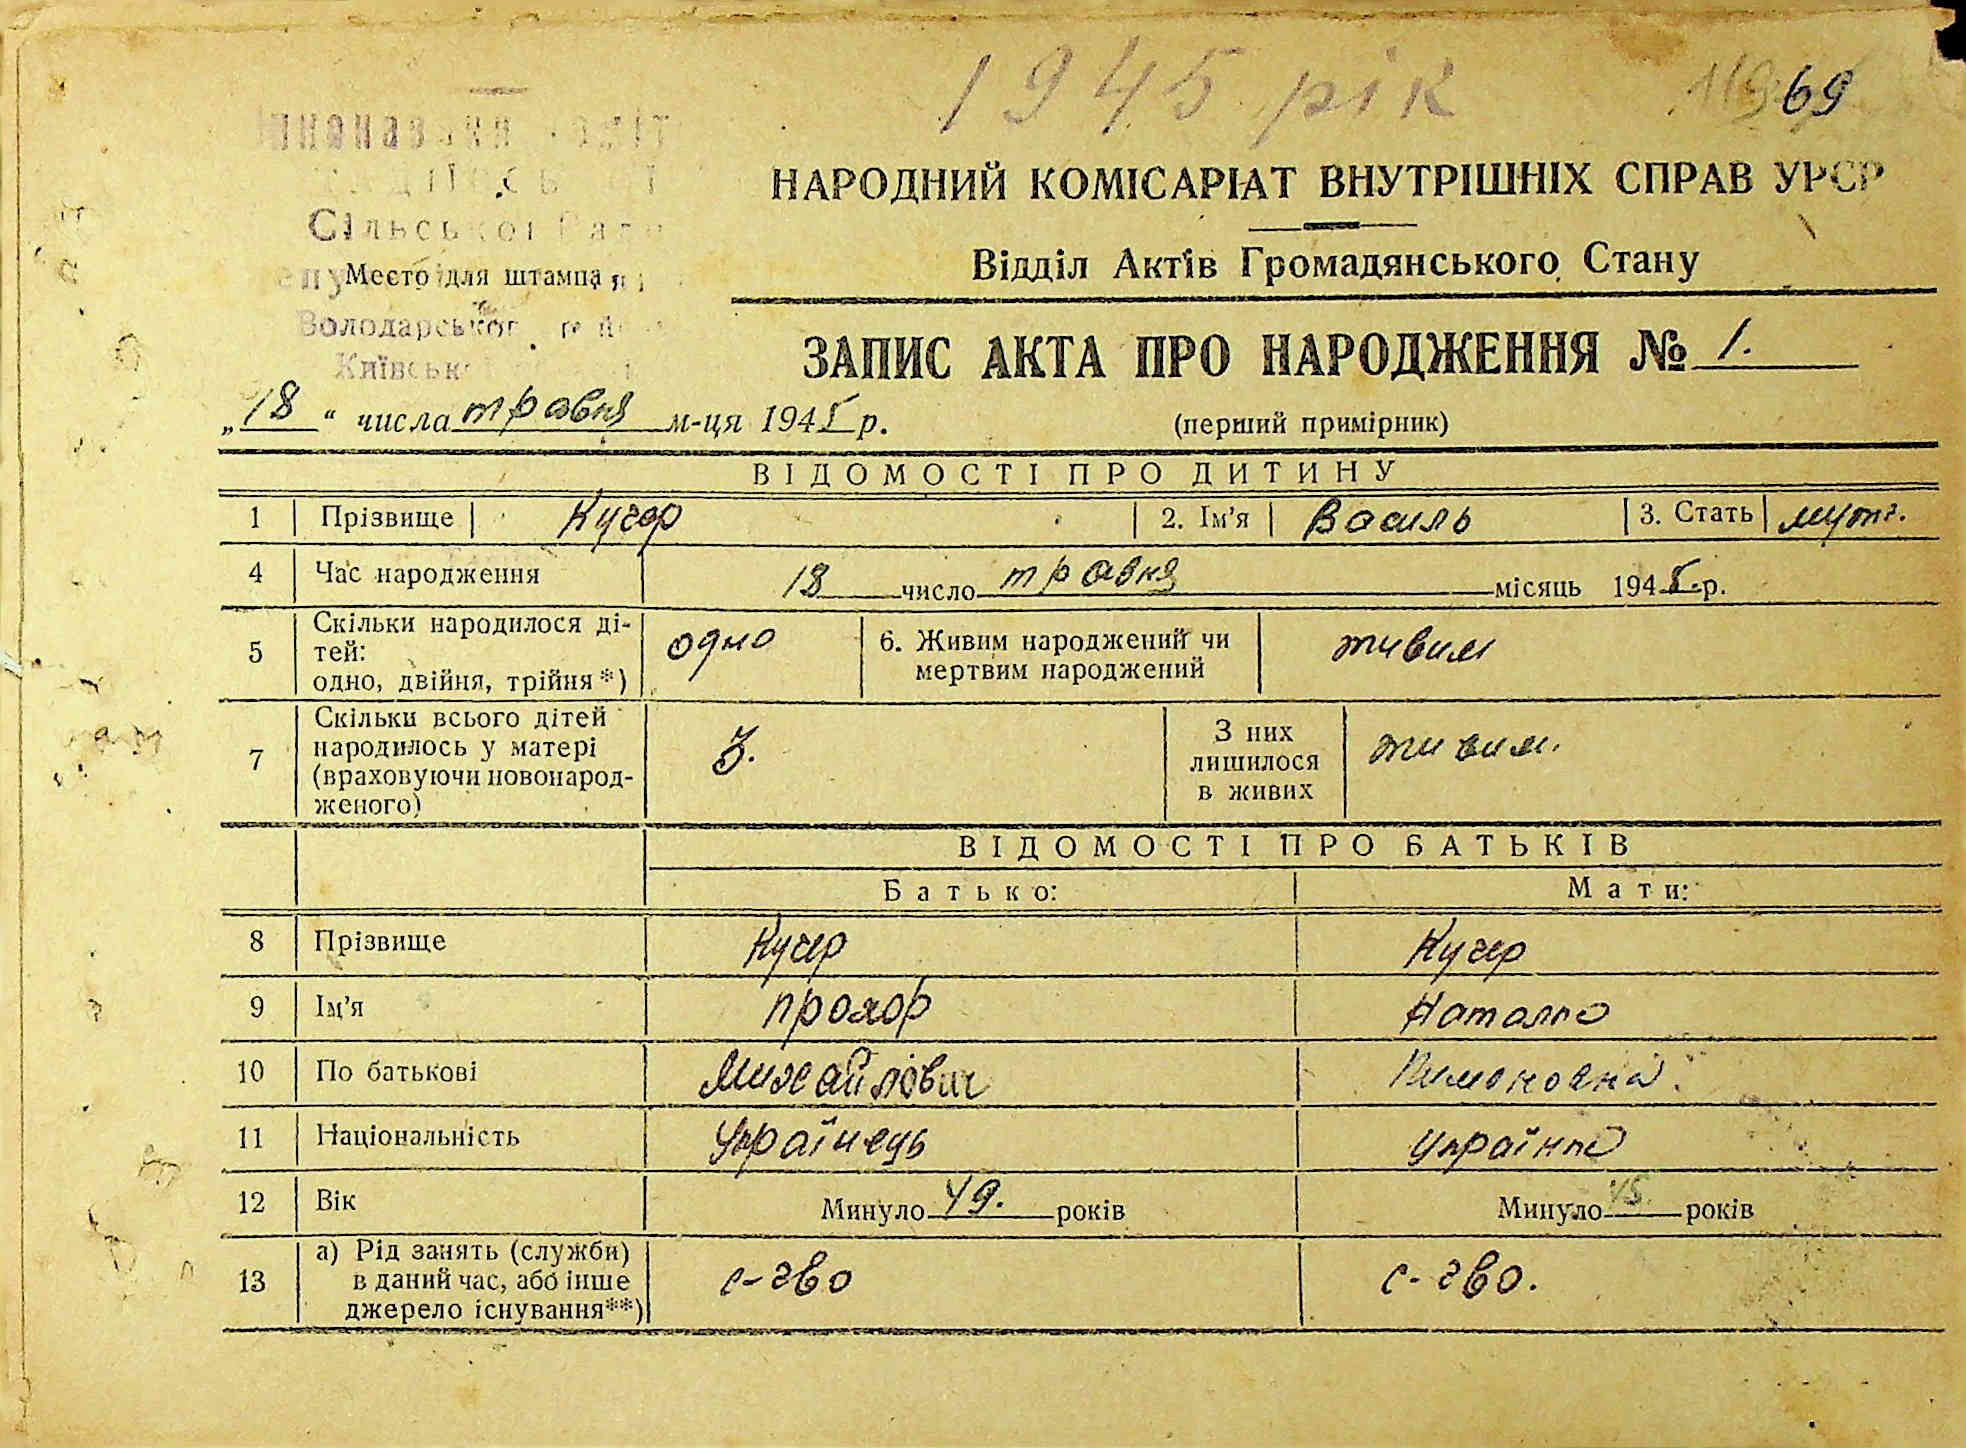 1945 рік
69
Сільської Рад
Место для штампа
Володарськог
Київськ
НАРОДНИЙ КОМІСАРІАТ ВНУТРІШНІХ СПРАВ УРСР
Відділ Актів Громадянського Стану
ЗАПИС АКТА ПРО НАРОДЖЕННЯ № 1.
„18“ числа травня м-ця 1945 р.
(перший примірник)
ВІДОМОСТІ ПРО ДИТИНУ
1 Прізвище Кучер 2. Ім'я Василь 3. Стать муж.
4 Час народження 18 число травня місяць 1945.р.
5 Скільки народилося ді-
тей:
одно, двійня, трійня*) одно 6. Живим народжений чи
мертвим народжений живим
7 Скільки всього дітей
народилось у матері
(враховуючи новонарод-
женого) 3. З них
лишилося
в живих живим.
ВІДОМОСТІ ПРО БАТЬКІВ
Батько: Мати:
8 Прізвище Кучер Кучер
9 Ім'я Прохор Наталка
10 По батькові Михайлович
11 Національність Українець Українка
12 Вік Минуло 49. років Минуло 45. років
13 а) Рід занять (служби)
в даний час, або інше
джерело існування**) с-гво с-гво.